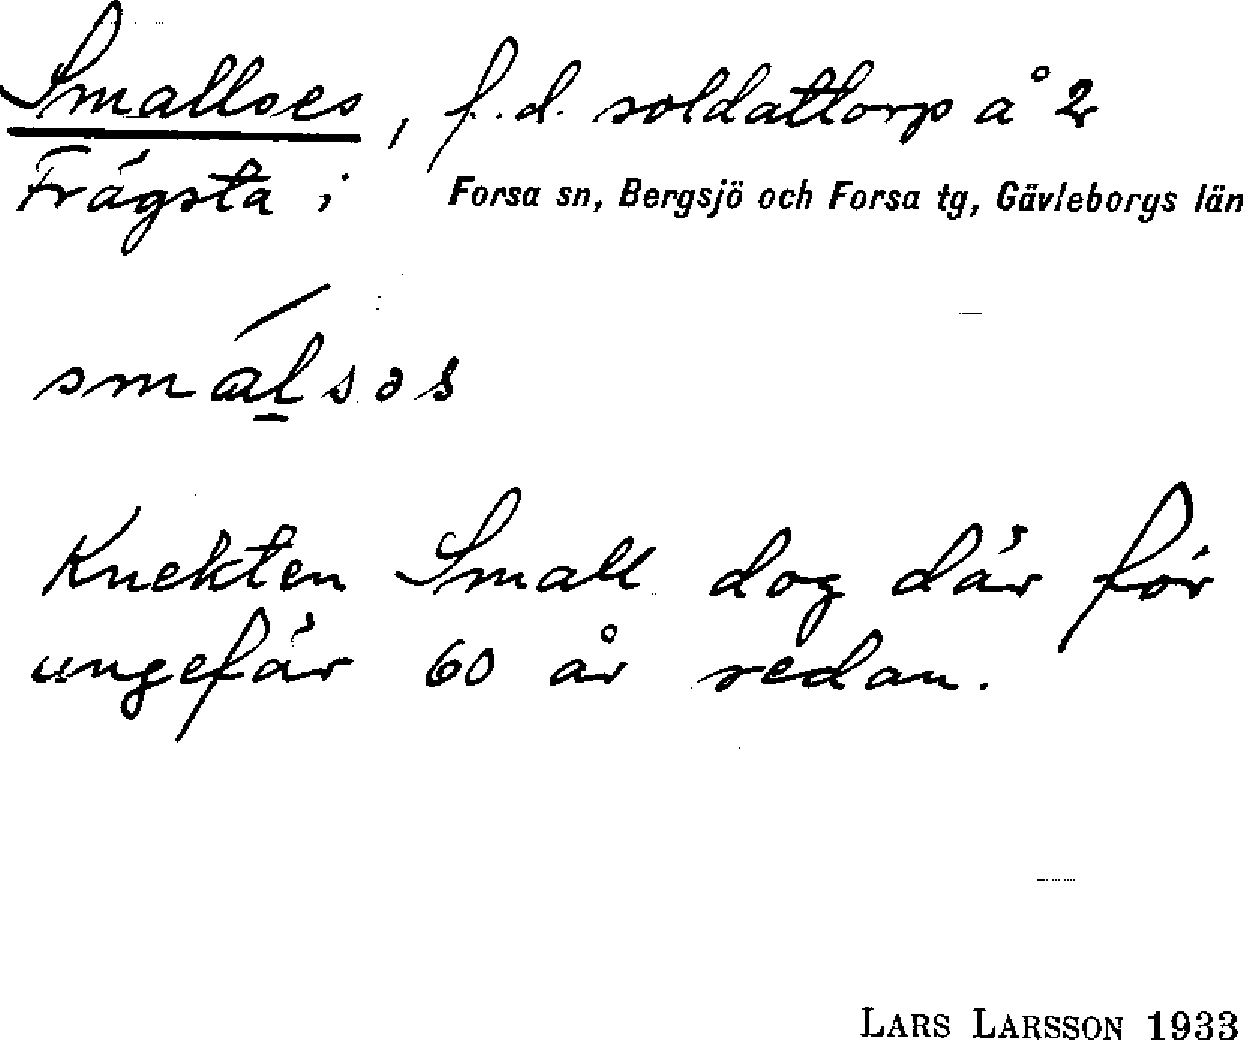 Smallses, f.d. soldattorp å 2
Frägsta i Forsa sn, Bergsjö och Forsa tg, Gävleborgs län
smalsəs
Knekten Small dog där för
ungefär 60 år sedan.
LARS LARSSON 1933